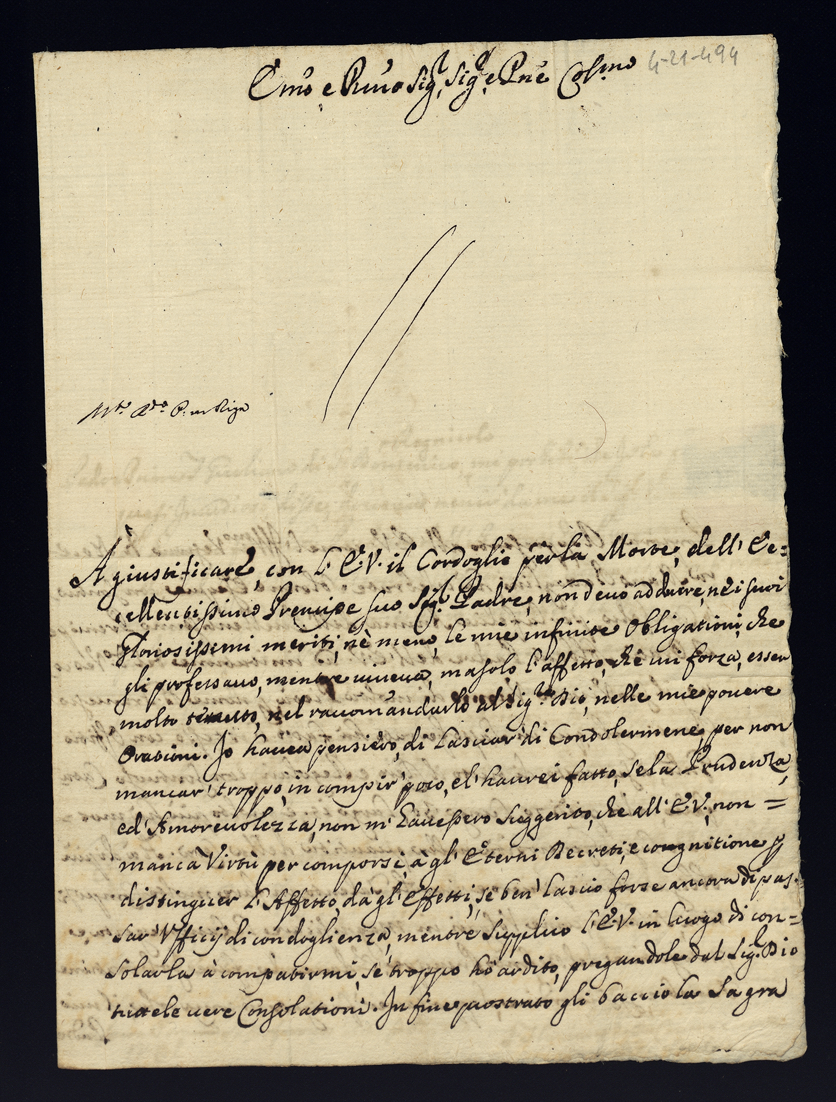 Emo e Rmo Sigr. Sigr. e Pne Colmo
4-21-494
A giustificare, con l'E.V. il Cordoglio per la Morte, dell' Ec=
cellentissimo Prencipe suo Sigr. Padre, non devo addurre, nè i suoi
Gloriosissimi meriti, nè meno, le mie infinite Obligationi, che
gli professavo, mentre viveva, ma solo l'affetto, che mi forza, esser
molto tenuto, nel raccomandarlo al Sigre. Dio, nelle mie povere
Orationi. Io havea pensiero, di lasciar di Condolermene, per non
mancar' troppo, in compir' poco, e l'haurei fatto, se la Prudenza,
ed Amorevolezza, non m'havessero suggerito, che all' E.V. non =
manca Virtù per comporsi, à gl' Eterni Decreti, e cognitione p
distinguer l'Affetto, dà gl' Effetti, se ben' lascio forse ancora di pas-
sar' Ufficij di condoglienza, mentre supplico l'E.V. in luogo di con=
solarla à compatirmi, se troppo hò ardito, pregandole dal Sigr. Dio
tutte le vere Consolationi. In fine prostrato gli baccio la Sagra